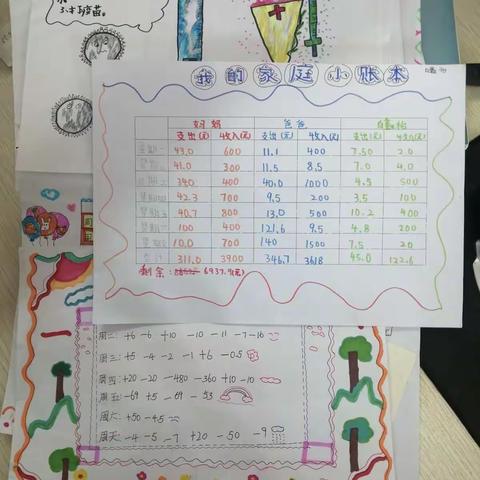 我的家庭小账本
妈妈 爸爸
支出(元) 收入(元) 支出(元) 收入(元) 支出(元) 收入(元)
星期一 43.0 600 11.1 400 7.50 2.0
41.0 300 11.5 8.5 7.0 4.0
34.0 400 40.0 1000 4.5 500
42.3 700 9.5 200 3.5 100
40.7 800 13.0 500 10.2 400
100 400 121.6 9.5 4.8 200
10.0 700 140 1500 7.5 20
311.0 3900 346.7 3618 45.0 122.6
剩余: 6937.9(元)
周二: +6 -6 +10 -10 -11 -7 -16
周三: +5 -4 -2 -1 +6 -0.5
周四: +20 -20 -480 -360 +10 -10
周五: -69 +5 -69 -53
周六: +50 -45
周天: -4 -5 -7 +20 -50 -9